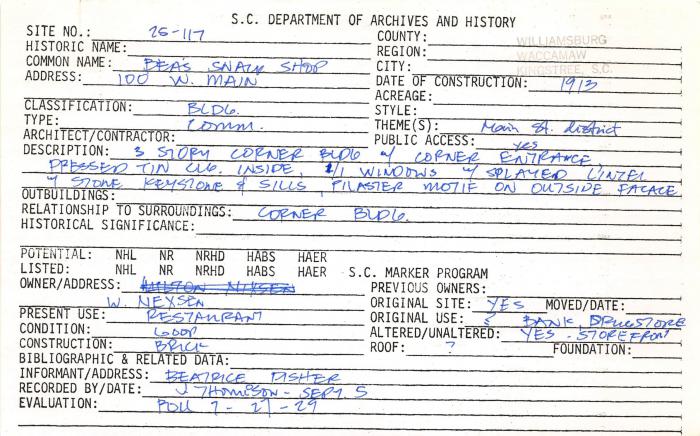 S.C. DEPARTMENT OF ARCHIVES AND HISTORY
SITE NO.: 25-117
COUNTY: WILLIAMSBURG
HISTORIC NAME:
REGION: WACCAMAW
COMMON NAME: BEA'S SNACK SHOP
CITY: KINGSTREE, S.C.
ADDRESS: 100 W. MAIN
DATE OF CONSTRUCTION: 1913
ACREAGE:
CLASSIFICATION: BLDG.
STYLE:
TYPE: Comm.
THEME(S): Main St. district
ARCHITECT/CONTRACTOR:
PUBLIC ACCESS: yes
DESCRIPTION: 3 STORY CORNER BLDG W/ CORNER ENTRANCE,
PRESSED TIN CLG. INSIDE, 1/1 WINDOWS W/ SPLAYED LINTEL
W/ STONE KEYSTONE & SILLS, PILASTER MOTIF ON OUTSIDE FACADE
OUTBUILDINGS:
RELATIONSHIP TO SURROUNDINGS: CORNER BLDG.
HISTORICAL SIGNIFICANCE:
POTENTIAL: NHL NR NRHD HABS HAER
LISTED: NHL NR NRHD HABS HAER S.C. MARKER PROGRAM
OWNER/ADDRESS: MILTON NIXSEN
PREVIOUS OWNERS:
W. NEXSEN
ORIGINAL SITE: YES MOVED/DATE:
PRESENT USE: RESTAURANT
ORIGINAL USE: BANK, DRUGSTORE
CONDITION: GOOD
ALTERED/UNALTERED: YES - STOREFRONT
CONSTRUCTION: BRICK
ROOF: ? FOUNDATION:
BIBLIOGRAPHIC & RELATED DATA:
INFORMANT/ADDRESS: BEATRICE FISHER
RECORDED BY/DATE: J. Thomison - SEPT. 5
EVALUATION: ROLL 7 - 27 - 29